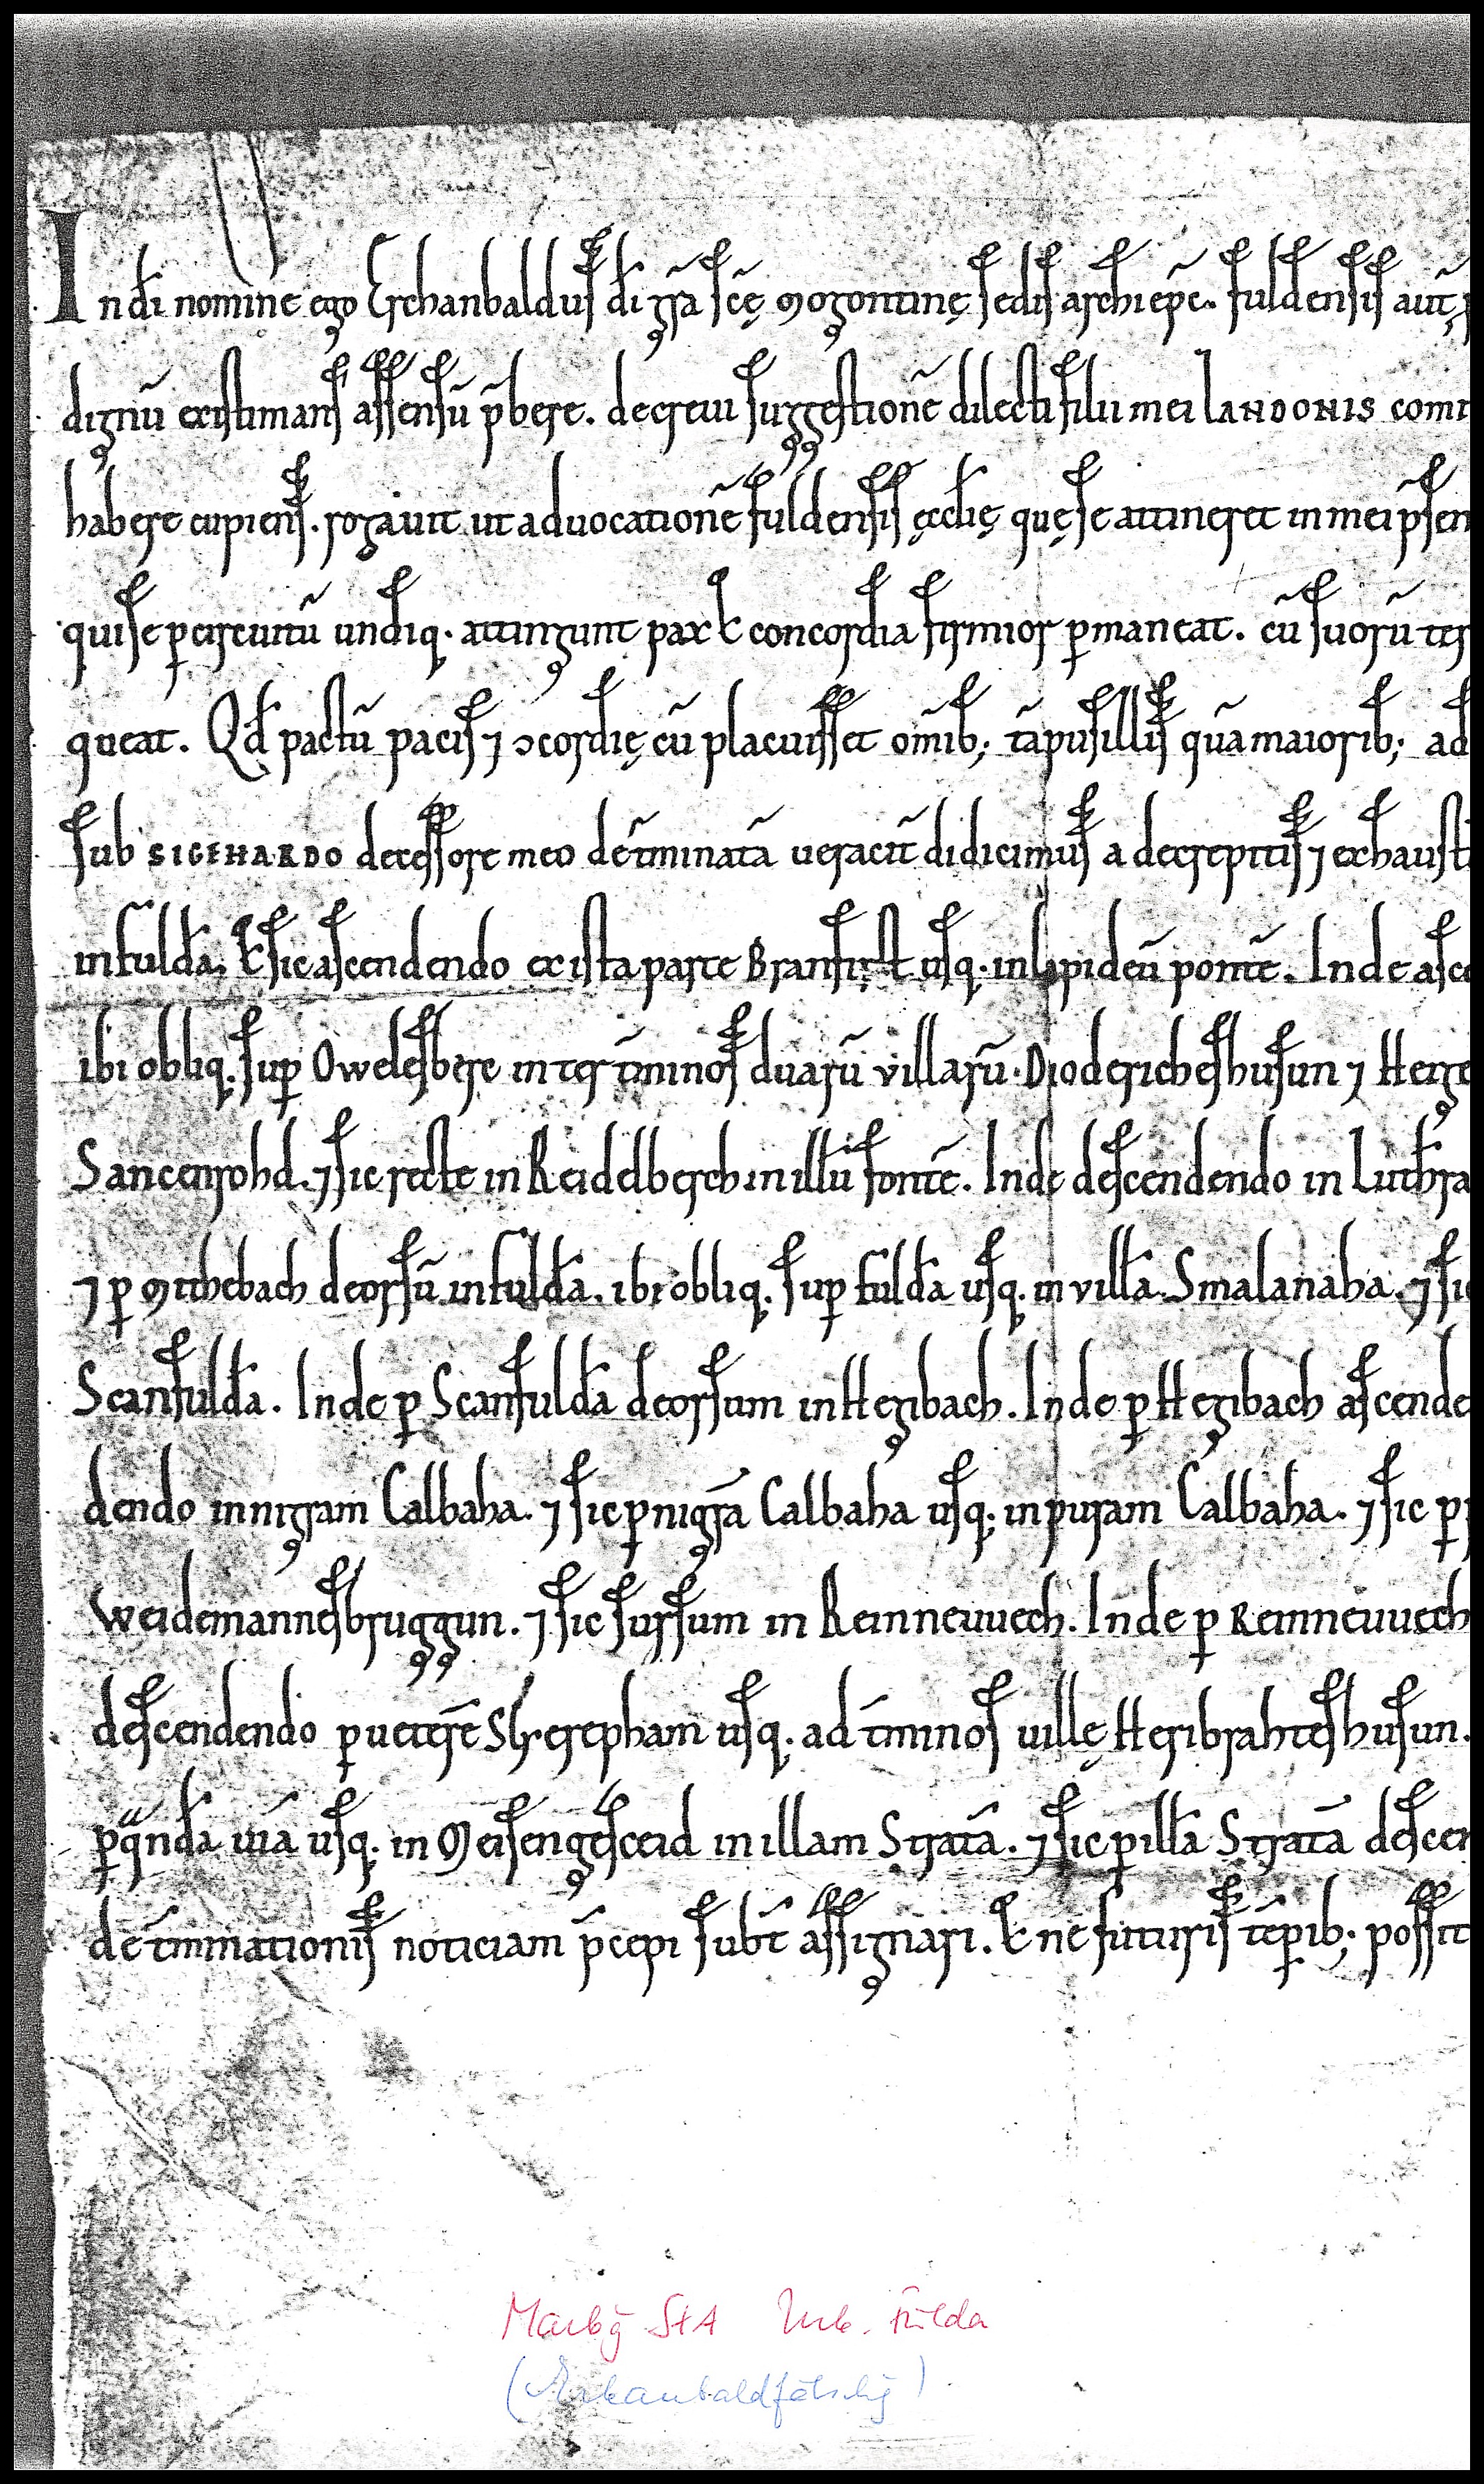 In dī nomine ego Erchanbalduſ dī gr̄a ſc̄ę Mogontinę ſediſ archiep̄c. fuldenſiſ aut̄
dignū exiſtimanſ aſſenſū p̄bere. decreui ſuggeſtionē dilecti filii mei LANDONIS
habere cupienſ. rogauit ut aduocationē fuldenſiſ ęccl̄ię quę ſe attineret in mei p̄ſen
qui ſe ꝑ circuitū undiq. attingunt pax & concordia firmior ꝑmaneat. cū ſuorū
queat. Qd̄ pactū paciſ ⁊ ↄcordię cū placuiſſet om̄ib; tā puſilliſ quā maiorib; ad
ſub SIGEHARDO deceſſore meo det̄minatā ueracit̄ didicimuſ a decrepitiſ ⁊ exhauſti
in fuld̄a. & ſic aſcendendo ex iſta parte Branfirſt uſq. in lapideū pontē. Inde aſce
ibi obliq. ſuꝑ Oweleſbere inter t̄minoſ duarū villarū. Diodericheſhuſun ⁊ Heize
Sancenrohd. ⁊ ſic recte in Reidelberch in illū fontē. Inde deſcendendo in Luthra
⁊ ꝑ Mithebach deorſū in fuld̄a. ibi obliq. ſuꝑ fuld̄a uſq. in vill̄a Smalanaha. ⁊ ſic
Scanfuld̄a. Inde ꝑ Scanfuld̄a deorſum in Hegibach. Inde ꝑ Hegibach aſcende
dendo in nigram Calbaha. ⁊ ſic ꝑ nigrā Calbaha uſq; in puram Calbaha. ⁊ ſic ꝑ
Weidemanneſbruggun. ⁊ ſic ſurſum in Reinneuuech. Inde ꝑ Reinneuuech
deſcendendo ꝑ ueterē uſq. ad t̄minoſ uillę Heribrahteſhuſun.
ꝑ uiā uſq; in Meiſengeſceid in illam Stratā. ⁊ ſic ꝑ ill̄a Stratā deſcen
det̄minationiſ noticiam p̄cepi ſubt̄ aſſignari. & ne futuriſ tēꝑib; poſſit
Marbg StA Urk. Fulda
(Erkanbaldfälschg)